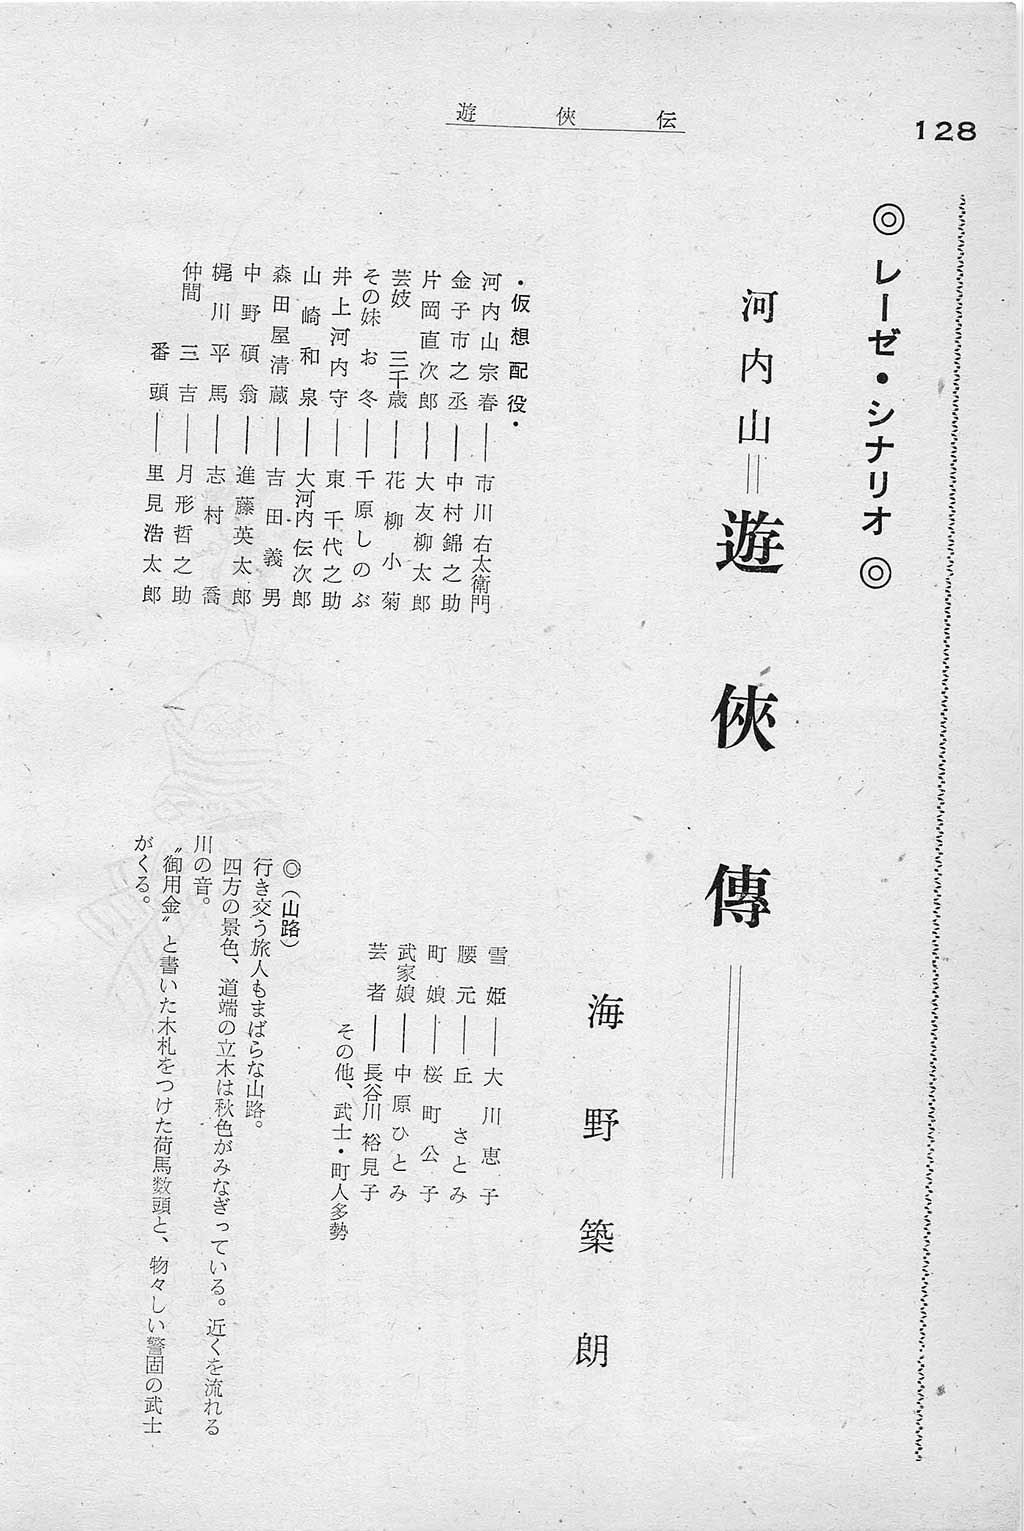 遊俠伝
128
◎レーゼ・シナリオ◎
河内山＝遊俠傳
海野築朗
・仮想配役・
河内山宗春――市川右太衛門
金子市之丞――中村錦之助
片岡直次郎――大友柳太郎
芸妓　三千歳――花柳小菊
その妹お冬――千原しのぶ
井上河内守――東千代之助
山崎和泉――大河内伝次郎
森田屋清蔵――吉田義男
中野碩翁――進藤英太郎
梶川平馬――志村喬
仲間　三吉――月形哲之助
番頭――里見浩太郎
雪姫――大川恵子
腰元――丘さとみ
町娘――桜町公子
武家娘――中原ひとみ
芸者――長谷川裕見子
その他、武士・町人多勢
◎（山路）
行き交う旅人もまばらな山路。
四方の景色、道端の立木は秋色がみなぎっている。近くを流れる
川の音。
〝御用金〟と書いた木札をつけた荷馬数頭と、物々しい警固の武士
がくる。